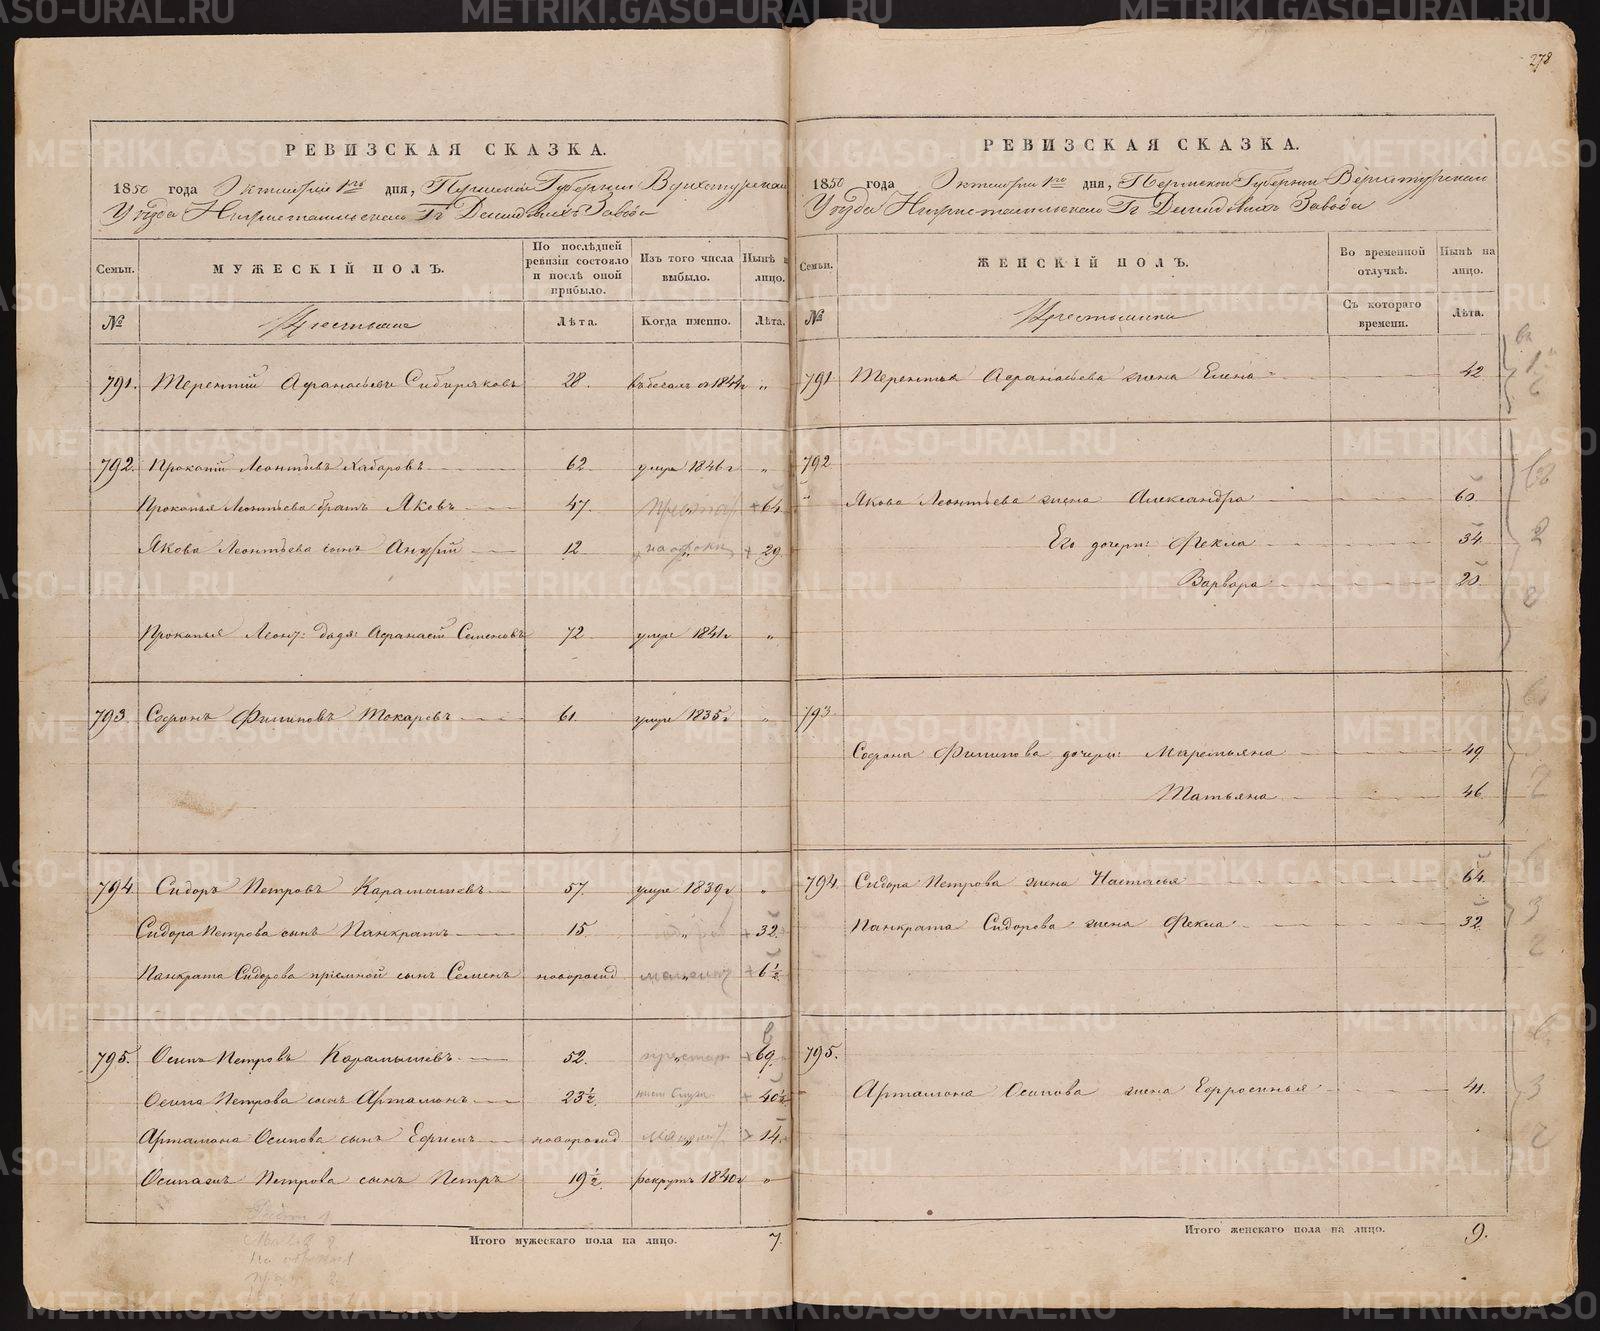 278
РЕВИЗСКАЯ СКАЗКА.
1850 года Октября 1го дня, Пермской Губернии Верхотурскаго
Уѣзда Нижнетагильскаго Гг Демидовыхъ Завода
Семьи.
МУЖЕСКІЙ ПОЛЪ.
По послѣдней ревизіи состояло и послѣ оной прибыло.
Изъ того числа выбыло.
Нынѣ на лицо.
№
Крестьяне
Лѣта.
Когда именно.
Лѣта.
791. Терентій Афанасьевъ Сибиряковъ 28. въ бегахъ съ 1844г "
792. Прокопій Леонтьевъ Хабаровъ 62. умре 1846г "
Прокопья Леонтьева братъ Яковъ 47. 64
Якова Леонтьева сынъ Ануфрій 12 29
Прокопья Леонт: дядя: Афанасій Семеновъ 72 умре 1841г "
793. Софронъ Филиповъ Токаревъ 61. умре 1835г "
794. Сидоръ Петровъ Карамышевъ 57. умре 1839г "
Сидора Петрова сынъ Панкратъ 15. 32.
Панкрата Сидорова пріемной сынъ Семенъ новорожд 6½
795. Осипъ Петровъ Карамышевъ 52. 69
Осипа Петрова сынъ Артамонъ 23½. 40½
Артамона Осипова сынъ Ефимъ новорожд 14
Осипа Петрова сынъ Петръ 19½. рекрутъ 1840г "
Итого мужескаго пола на лицо. 7.
РЕВИЗСКАЯ СКАЗКА.
1850 года Октября 1го дня, Пермской Губерніи Верхотурскаго
Уѣзда Нижнетагильскаго Гг Демидовыхъ Завода
Семьи.
ЖЕНСКІЙ ПОЛЪ.
Во временной отлучкѣ.
Нынѣ на лицо.
№
Крестьянки
Съ котораго времени.
Лѣта.
791 Терентья Афанасьева жена Елена 42.
792
" Якова Леонтьева жена Александра 60.
Его дочери: Фекла 34
Варвара 20
793.
Софрона Филипова дочери: Маремьяна 49
Татьяна 46
794. Сидора Петрова жена Настасья 64
Панкрата Сидорова жена Фекла 32
795.
Артамона Осипова жена Ефросинья 41.
Итого женскаго пола на лицо. 9.
METRIKI.GASO-URAL.RU